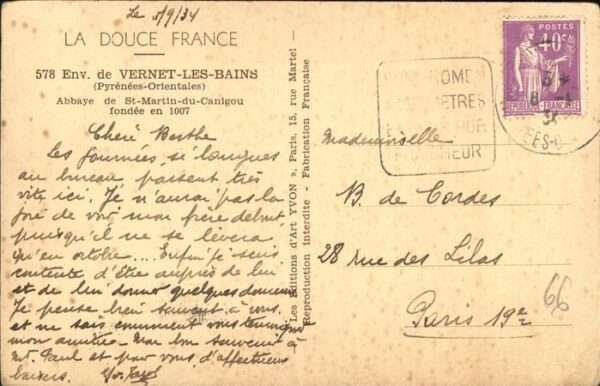 Le 5/9/34
LA DOUCE FRANCE
578 Env. de VERNET-LES-BAINS
(Pyrénées-Orientales)
Abbaye de St-Martin-du-Canigou
fondée en 1007
Cheré Berthe
Les journées, si longues
au bureau passent très
vite, ici. Je n'aurai pas la
joie de voir mon frère debout
puisqu'il ne se lèvera
qu'en octobre.... Enfin je suis
contente d'être auprès de lui
et de lui donner quelques douceurs
Je pense bien souvent à vous
et ne sais comment vous
mon amitié. Mon bon souvenir à
Mt. Paul et pour vous, d'affectueux
baisers.
Les Editions d'Art YVON, Paris, 15, rue Martel
Reproduction Interdite - Fabrication Française
POSTES
40c
REPUBLIQUE FRANÇAISE
METRES
Mademoiselle
B. de Cordes
28 rue des Lilas
Paris 19e
66